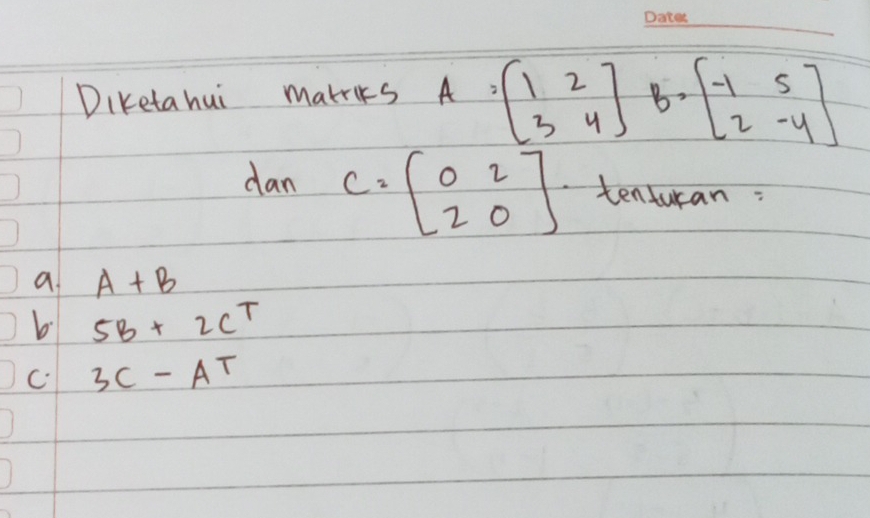 Date:
Diketahui matriks A = [1 2 3 4] B = [-1 5 2 -4]
dan C = [0 2 2 0]. tentukan =
a. A + B
b. 5B + 2Cᵀ
c. 3C - Aᵀ